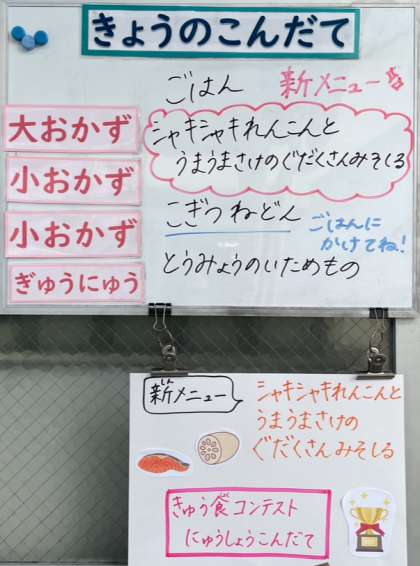 きょうのこんだて
ごはん
新メニュー
大おかず
シャキシャキれんこんと
うまうまさけのぐだくさんみそしる
小おかず
こぎつねどん
ごはんに
かけてね!
小おかず
とうみょうのいためもの
ぎゅうにゅう
新メニュー
シャキシャキれんこんと
うまうまさけの
ぐだくさんみそしる
きゅう食コンテスト
にゅうしょうこんだて